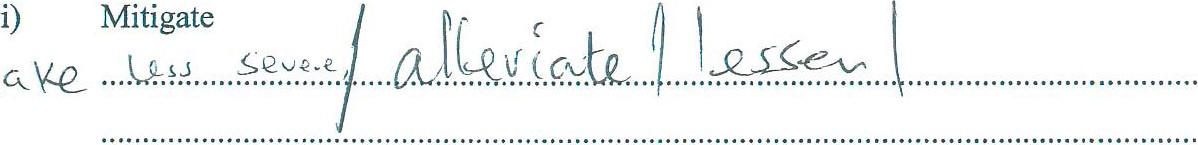 i) Mitigate
ake less severe/ alleviate/ lessen/